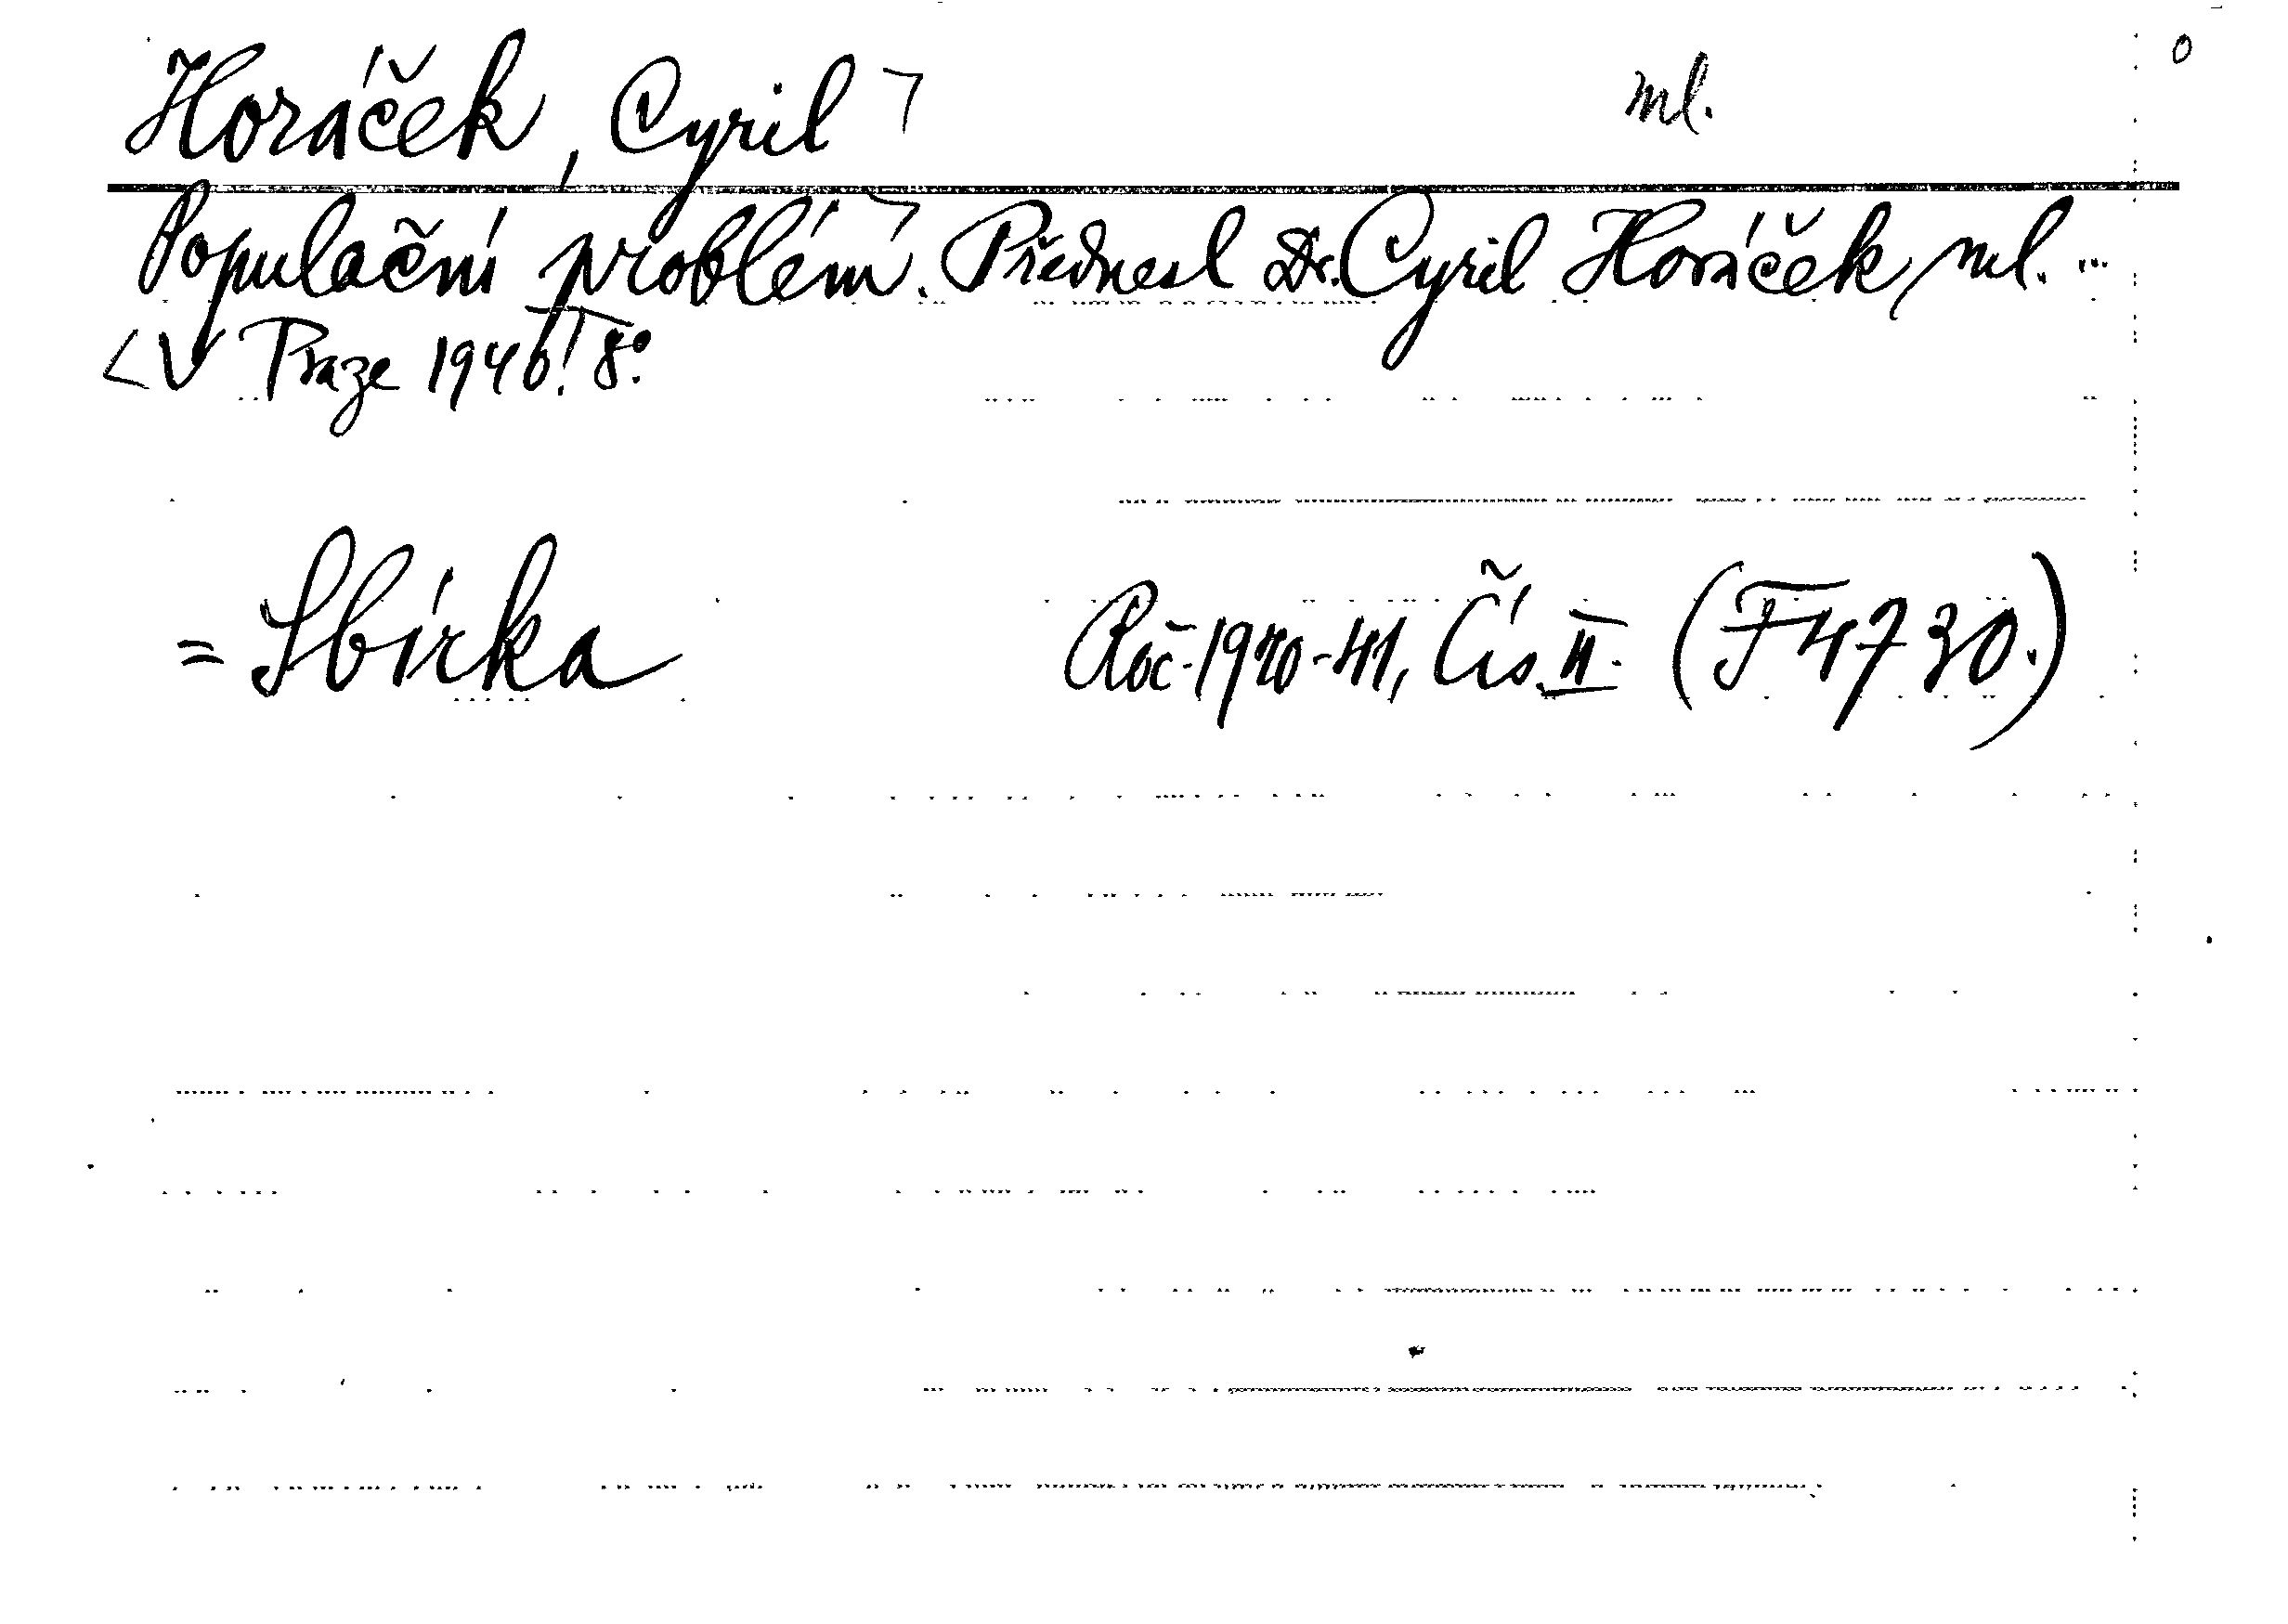 Horáček, Cyril ml. 0
Populační problém. Přednesl Dr. Cyril Horáček, ml. ...
V Praze 1940. 8°.
= Sbírka Roč. 1940-41, Čís. II. (F 4730.)